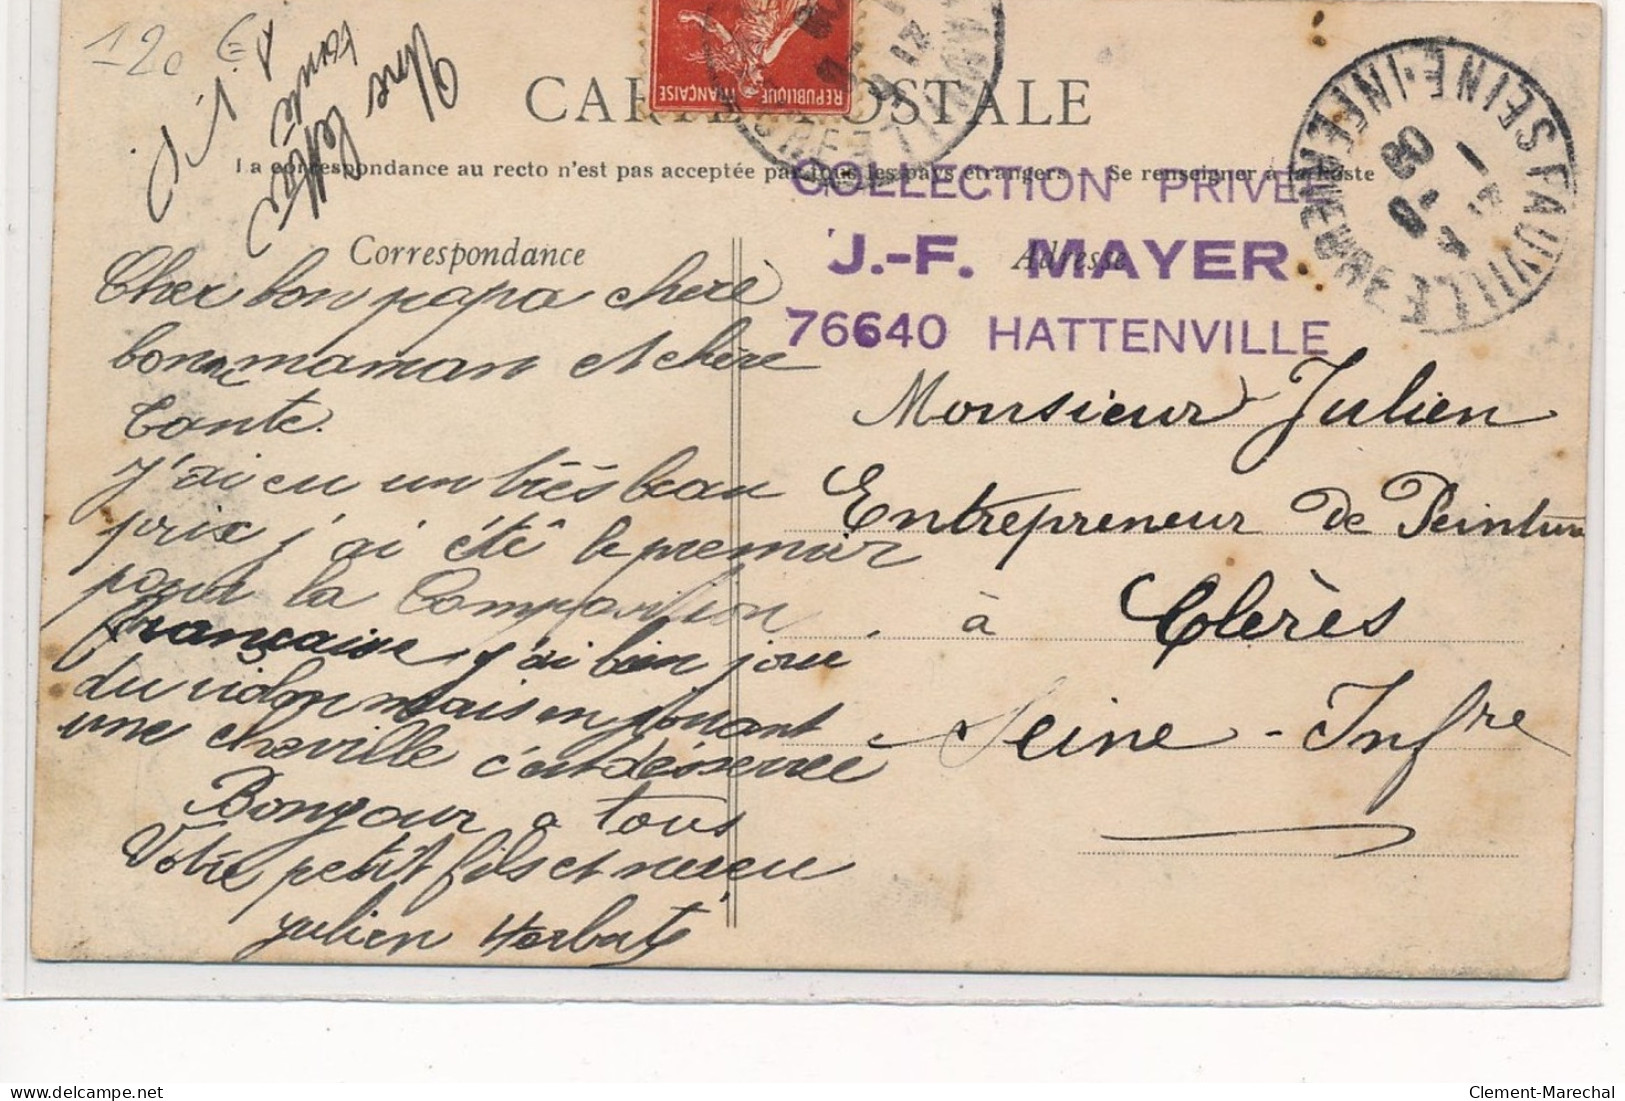 120 €
Une
lettre
toute
CARTE POSTALE
REPUBLIQUE FRANÇAISE
La correspondance au recto n'est pas acceptée par tous les pays étrangers Se renseigner à la Poste
COLLECTION PRIVEE
J.-F. MAYER
76640 HATTENVILLE
FAUVILLE SEINE-INFERIEURE
08
Correspondance
Adresse
Cher bon papa chère
bonne maman et chère
Tante.
J'ai eu un très beau
prix j'ai été le premier
pour la Composition
française, j'ai bien joué
du violon mais en jouant
une cheville c'est désserrée
Bonjour a tous
Votre petit fils et neveu
Julien
Monsieur Julien
Entrepreneur de Peinture
à Clères
Seine-Infre
Clement-Marechal